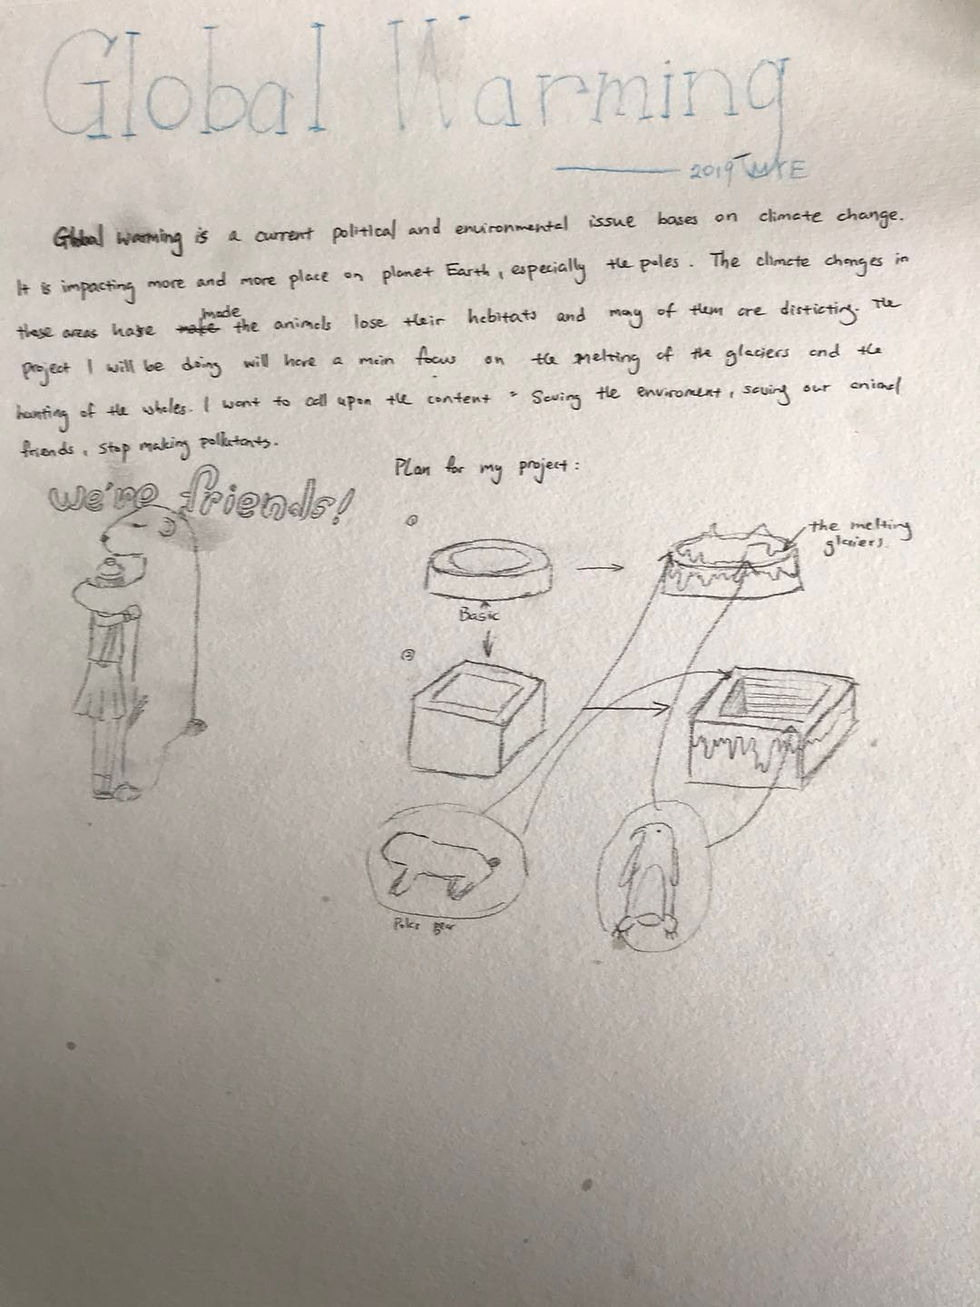 Global Warming
2019
Global warming is a current political and environmental issue bases on climate change.
It is impacting more and more place on planet Earth, especially the poles. The climate changes in
these areas have make made the animals lose their habitats and may of them are disticting. The
project I will be doing will have a main focus on the melting of the glaciers and the
hunting of the whales. I want to call upon the content : Saving the enviroment, saving our animal
friends, stop making pollutants.
Plan for my project:
we're friends!
①
the melting
glaciers.
Basic
②
Polar Bear